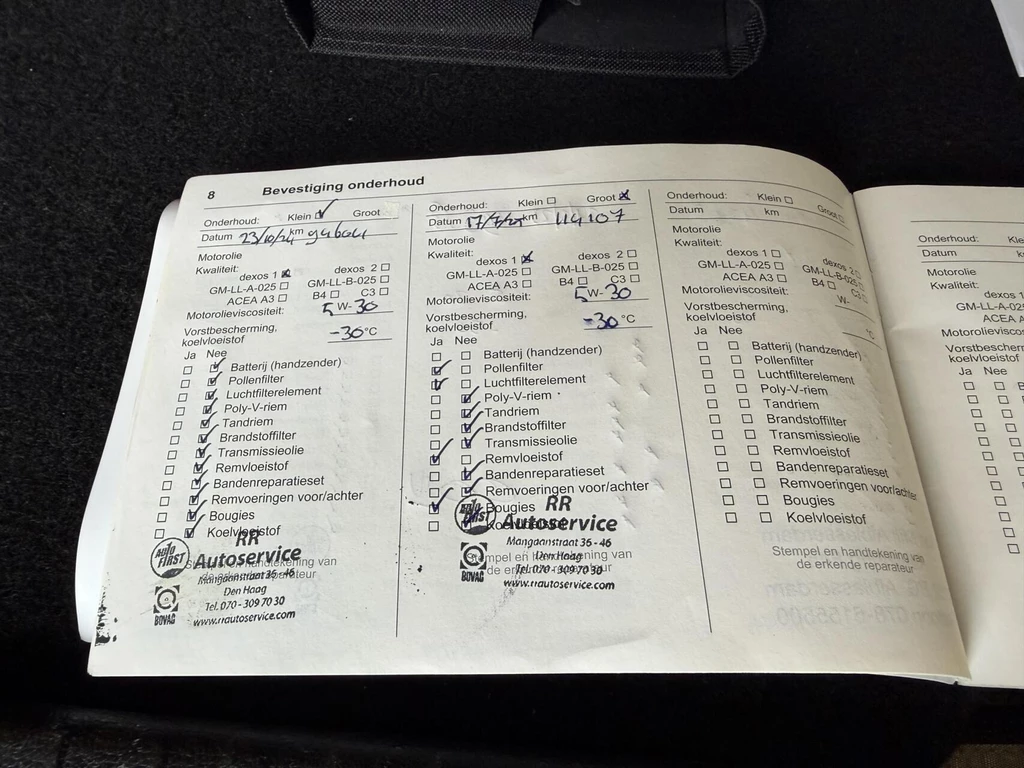 8 Bevestiging onderhoud
Onderhoud: Klein Groot
Datum 23/10/24 km
Motorolie
Kwaliteit:
dexos 1 dexos 2
GM-LL-A-025 GM-LL-B-025
ACEA A3 B4 C3
Motorolieviscositeit: 5 W- 30
Vorstbescherming,
koelvloeistof -30 °C
Ja Nee
Batterij (handzender)
Pollenfilter
Luchtfilterelement
Poly-V-riem
Tandriem
Brandstoffilter
Transmissieolie
Remvloeistof
Bandenreparatieset
Remvoeringen voor/achter
Bougies
Koelvloeistof
AUTO FIRST
RR
Autoservice
Mangaanstraat 36 - 46
Den Haag
Tel. 070 - 309 70 30
www.rrautoservice.com
BOVAG
Onderhoud: Klein Groot
Datum 17/7/25 km 114107
Motorolie
Kwaliteit:
dexos 1 dexos 2
GM-LL-A-025 GM-LL-B-025
ACEA A3 B4 C3
Motorolieviscositeit: 5 W- 30
Vorstbescherming,
koelvloeistof -30 °C
Ja Nee
Batterij (handzender)
Pollenfilter
Luchtfilterelement
Poly-V-riem
Tandriem
Brandstoffilter
Transmissieolie
Remvloeistof
Bandenreparatieset
Remvoeringen voor/achter
Bougies
Koelvloeistof
AUTO FIRST
RR
Autoservice
Mangaanstraat 36 - 46
Den Haag
Tel. 070 - 309 70 30
www.rrautoservice.com
BOVAG
Onderhoud: Klein Groot
Datum km
Motorolie
Kwaliteit:
dexos 1 dexos 2
GM-LL-A-025 GM-LL-B-025
ACEA A3 B4 C3
Motorolieviscositeit: W-
Vorstbescherming,
koelvloeistof °C
Ja Nee
Batterij (handzender)
Pollenfilter
Luchtfilterelement
Poly-V-riem
Tandriem
Brandstoffilter
Transmissieolie
Remvloeistof
Bandenreparatieset
Remvoeringen voor/achter
Bougies
Koelvloeistof
Stempel en handtekening van
de erkende reparateur
Onderhoud: Kle
Datum
Motorolie
Kwaliteit:
dexos 1
GM-LL-A-02
ACEA A
Motorolievisco
Vorstbescher
koelvloeistof
Ja Nee